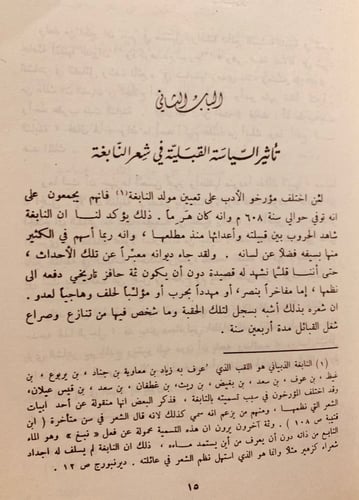 الباب الثاني
تأثير السياسة القبلية في شعر النابغة
لئن اختلف مؤرخو الأدب على تعيين مولد النابغة (١) فانهم يجمعون على
انه توفي حوالي سنة ٦٠٨ م وانه كان هرماً . ذلك يؤكد لنا ان النابغة
شاهد الحروب بين قبيلته وأعدائها منذ مطلعها ، وانه ربما أسهم في الكثير
منها بسيفه فضلاً عن لسانه . ولقد جاء ديوانه معبّراً عن تلك الأحداث ،
حتى أننا قلّما نشهد له قصيدة دون أن يكون ثمة حافز تاريخي دفعه الى
نظمها ، إما مفاخراً بنصر، أو مهدداً بحرب أو مؤلّباً لحلف وهاجياً لعدو .
ان شعره بذلك أشبه بسجل لتلك الحقبة وما شخص فيها من تنازع وصراع
شغل القبائل مدة أربعين سنة .
(١) النابغة الذبياني هو اللقب الذي عرف به زياد بن معاوية بن جناد ، بن يربوع ، بن
غيظ ، بن عوف ، بن سعد ، بن بغيض ، بن ريث، بن غطفان ، بن سعد ، بن قيس عيلان،
وقد اختلف المؤرخون في سبب تسميته بالنابغة ، فذكر بعضهم انها منقولة عن أحد أبيات
الشعر التي نظمها ، ومنهم من يزعم انه سمي كذلك لانه قال الشعر في سن متأخرة ( ابن
قتيبة ص ١٠٨ ) . وثمة آخرون يرون ان هذه التسمية محمولة عن فعل « نبغ » وهو الماء
النابع من ذاته دون أن يعرف من أين يستمد ماءه ، ذلك ان النابغة لم يسلف له اجداد
شعراء كزهير مثلا وانما هو الذي استهل نظم الشعر في عائلته . ديرنبورج ص ١٢ .
١٥